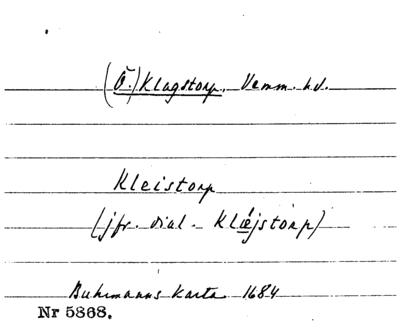 (Ö.) Klagstorp. Vemm. hd.
Kleistorp
(jfr. dial. Klǽjstòrp)
Buhrmanns karta 1684
Nr 5868.